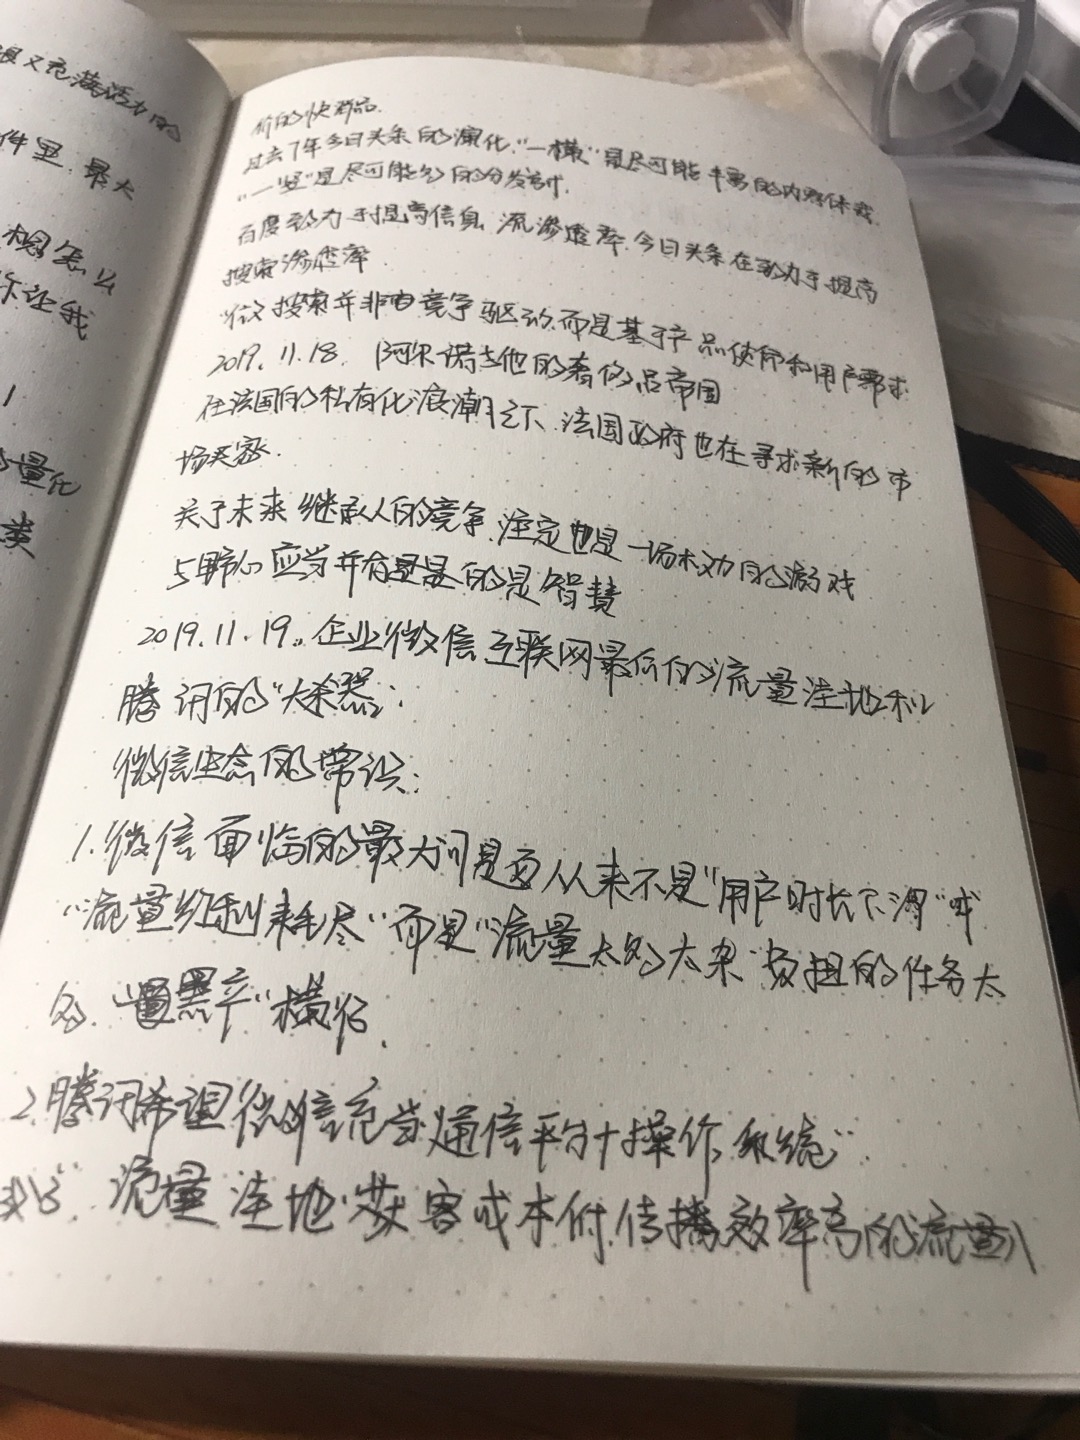 很又充满活力的
件里.最大
想怎么
你让我
量化
类
价的快消品.
过去7年今日头条的演化,“一横”是尽可能丰富的内容体裁,
“一竖”是尽可能多的分发
百度致力于提高信息流渗透率.今日头条在致力于提高
搜索渗透率
搜索并非由竞争驱动,而是基于产品使命和用户需求
2019.11.18. 阿尔诺与他的奢侈品帝国
在法国的私有化浪潮之下.法国政府也在寻求新的市
场
关于未来继承人的竞争.注定也是一场权力的游戏
与野心应当并有的是智慧
2019.11.19.企业微信互联网最后的流量洼地和
腾讯的“大杀器:
微信生态的常识:
1.微信面临的最大问是从来不是“用户时长下滑”或
“流量红利耗尽”而是“流量太多太杂”负担的任务太
多.“黑产”横行.
2.腾讯希望微信充当“通信平台+操作系统”
“流量洼地:获客成本低,传播效率高的流量入